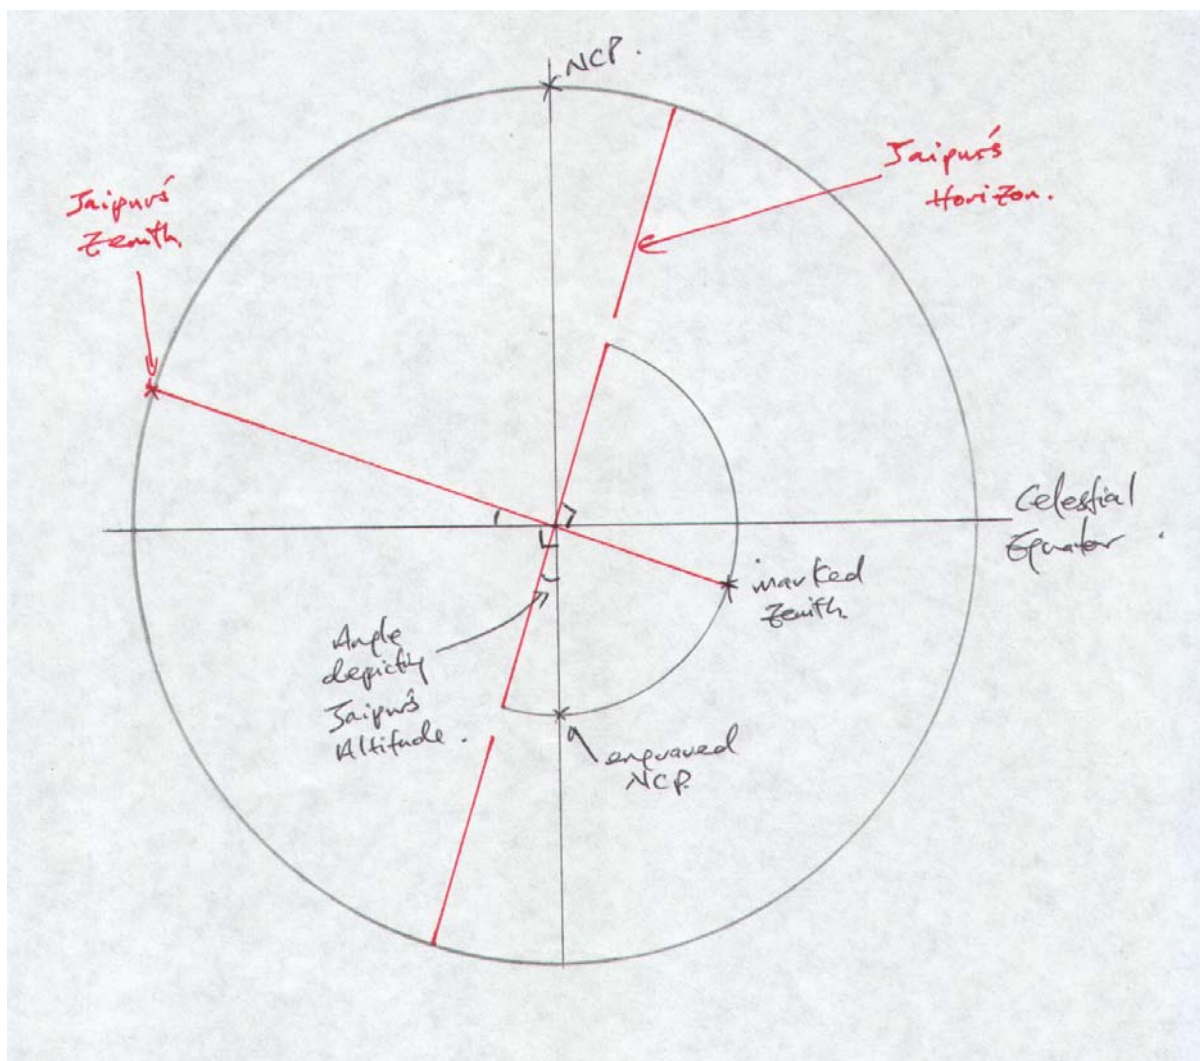 NCP.
Jaipur's
Horizon.
Jaipur's
Zenith.
Celestial
Equator.
marked
Zenith.
Angle
depicting
Jaipur's
Altitude.
engraved
NCP.